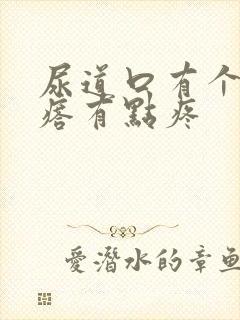 尿道口有个
痞有點疼
愛潛水的章魚